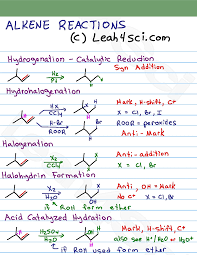 ALKENE REACTIONS
(C) Leah4Sci.com
Hydrogenation - Catalytic Reduction
H2
Pt
Syn Addition
Hydrohalogenation
HX
CCl4
Mark, H-shift, C+
X = Cl, Br, I
H-Br
ROOR
ROOR = peroxides
Anti-Mark
Halogenation
X2
CCl4
Anti-addition
X = Cl, Br
Halohydrin Formation
X2
H2O
Anti, OH = Mark
No C+ X = Cl, Br
if ROH form ether
Acid Catalyzed Hydration
H2SO4
H2O
Mark, H-shift, C+
also see H+/H2O or H3O+
if ROH used form ether